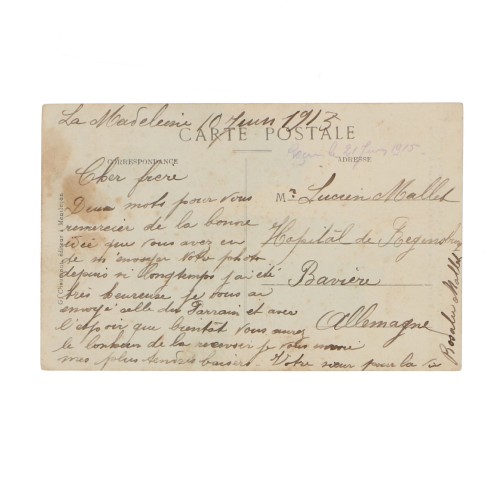 La Madeleine 10 Juin 1915
CARTE POSTALE
Reçu le 21 Juin 1915
CORRESPONDANCE
ADRESSE
Cher frere
Deux mots pour vous
remercier de la bonne
idée que vous avez eu
de m'envoyer votre photo
depuis si longtemps j'ai été
très heureuse je vous ai
envoyé celle du Parrain et avec
l'espoir que bientôt vous aurez
le bonheur de la recevoir je vous envoie
mes plus tendres baisers. Votre sœur pour la vie
Rosalie Mallet
Mr Lucien Mallet
Hopital de
Bavière
Allemagne